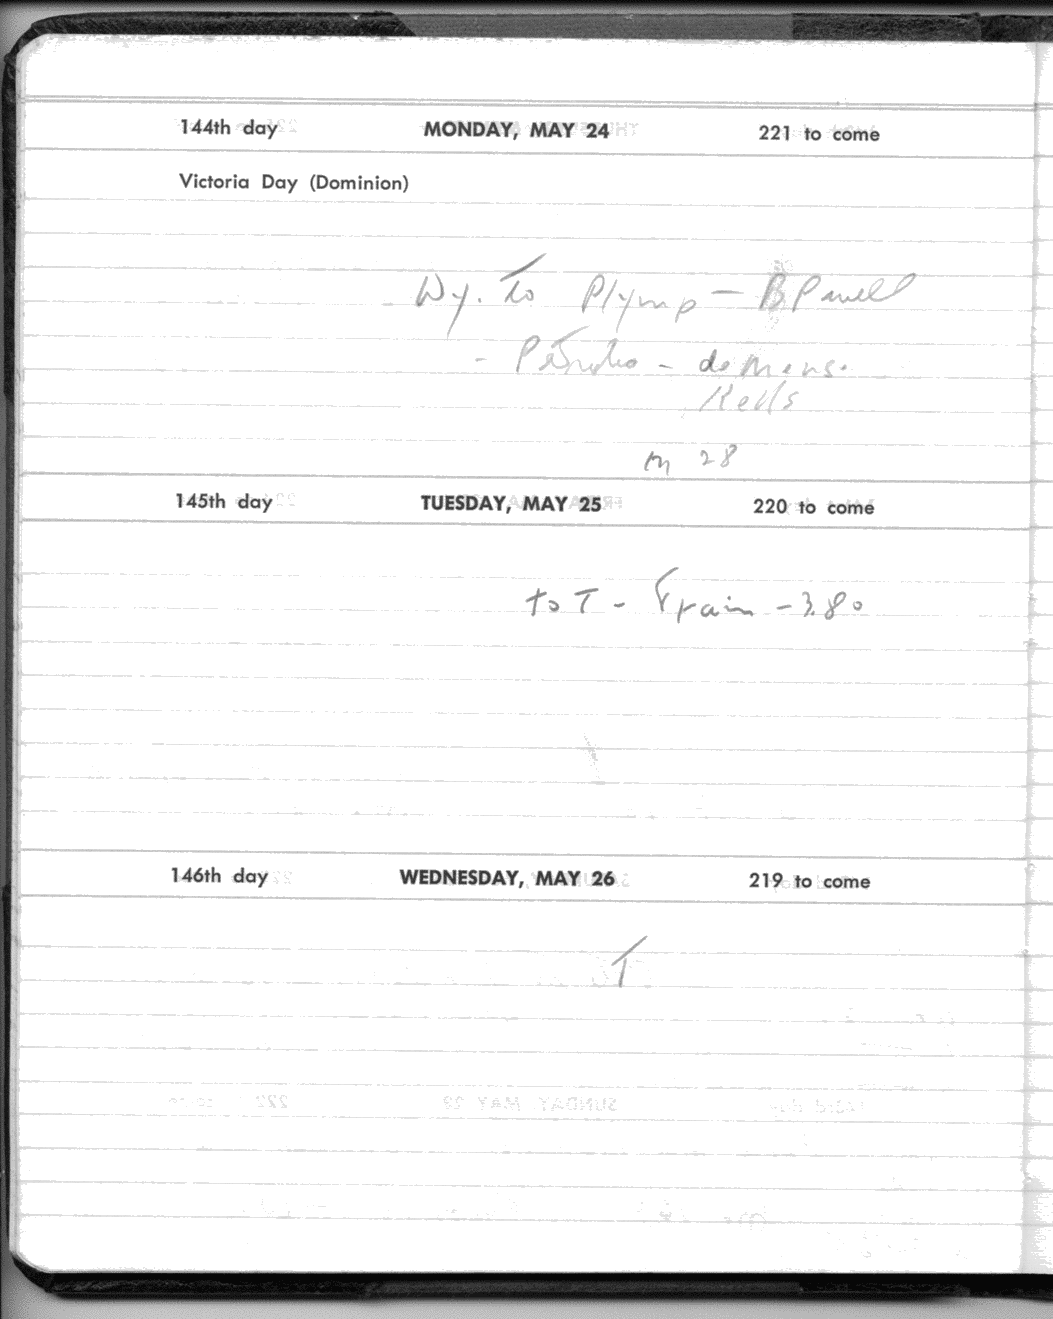 144th day MONDAY, MAY 24 221 to come
Victoria Day (Dominion)
Wy. To Plymp - B Powell
- Petrolia - de Mens.
Kells
m 28
145th day TUESDAY, MAY 25 220 to come
to T - Train - 3.80
146th day WEDNESDAY, MAY 26 219 to come
T